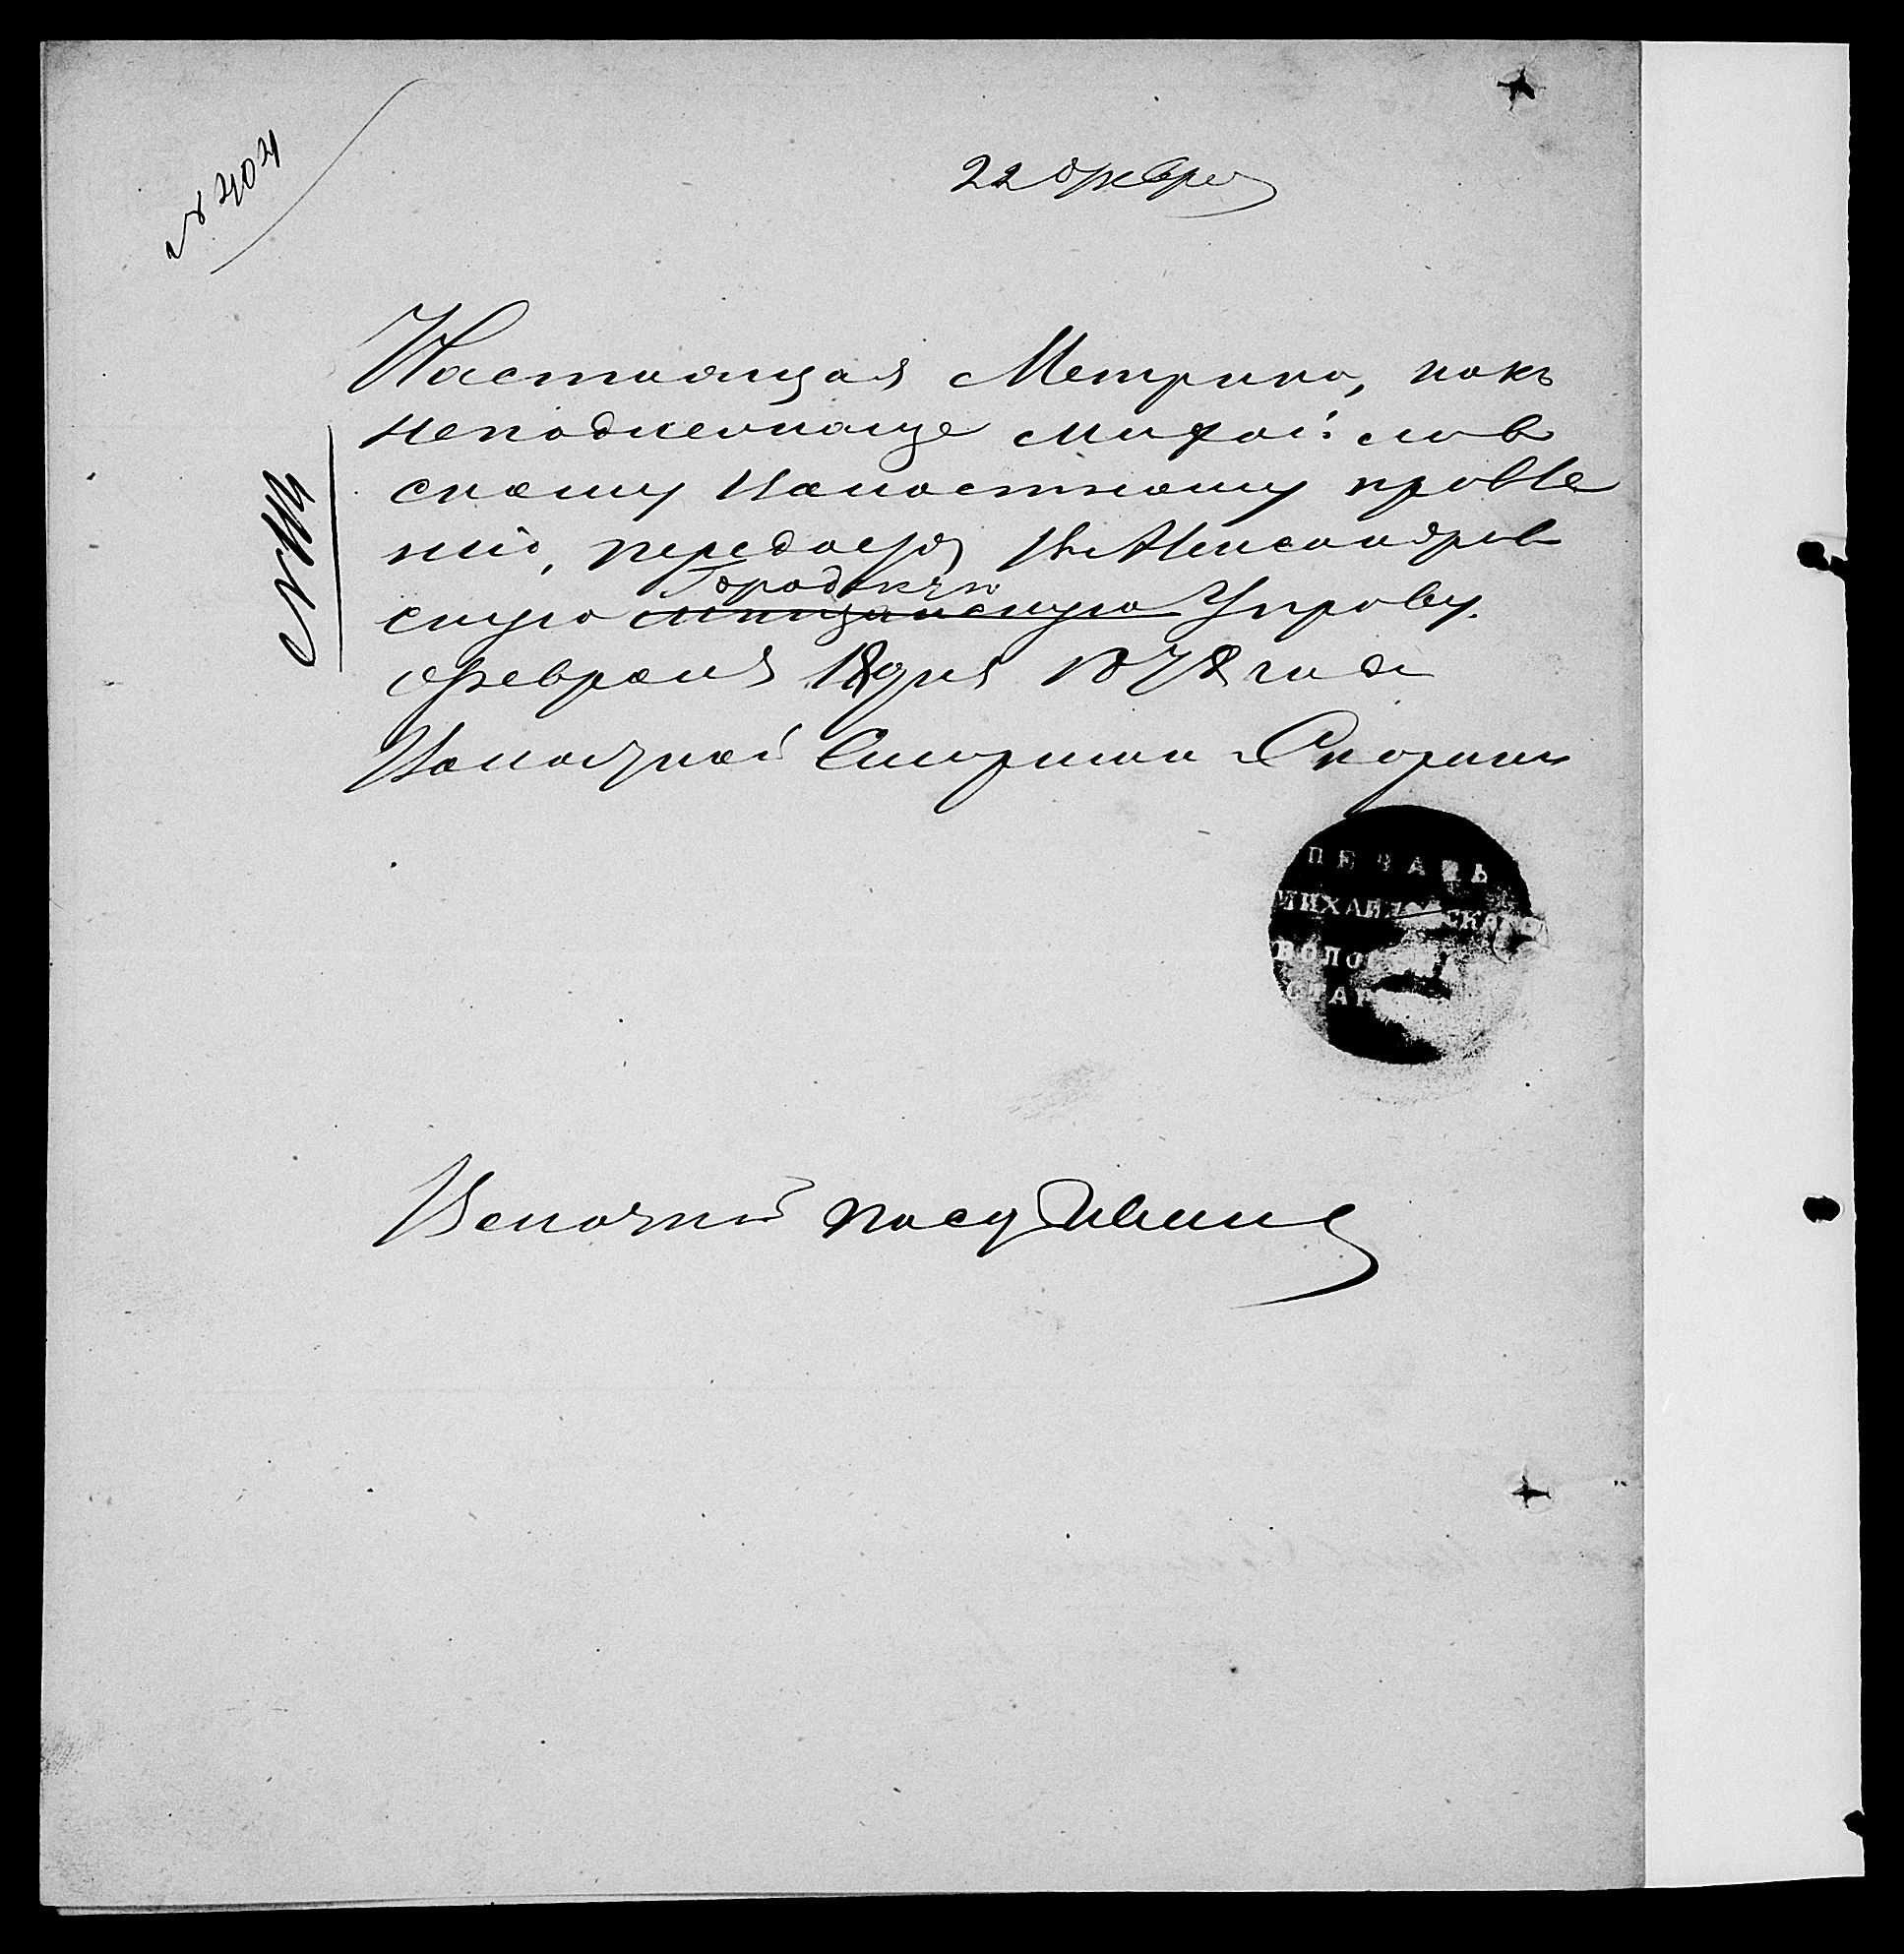 № 404
22 февра
Настоящая Метрика, какъ
неподлежаще Михайлов
скому Волостному правле
нію, передается В Александров
Городскую
скую мещанскую Управу.
Февраля 18 дня 1878 года
Волостной Старшина
ПЕЧАТЬ
МИХАЙЛОВСКАГО
ВОЛОСТН
СТАР
Волостной писа